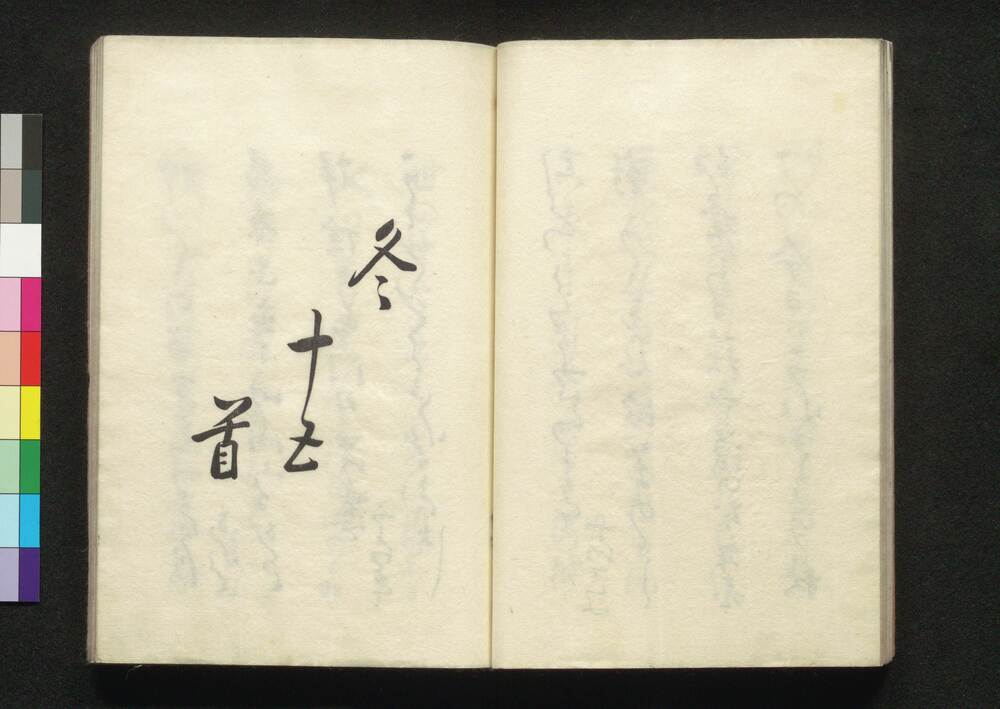 冬
十五
首